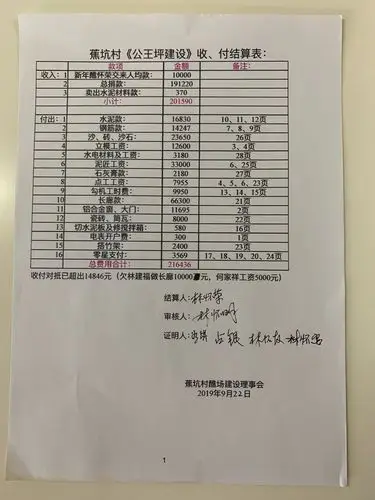 蕉坑村《公王坪建设》收、付结算表:
款项 金额 备注:
收入: 1 新年醮怀荣交来人均款: 10000
2 总捐款: 191220
3 卖出水泥材料款: 370
小计: 201590
付出: 1 水泥款: 16830 10、11、12页
2 钢筋款: 14247 7、8、9页
3 沙、砖、沙石: 23650 26页
4 立模工资: 12600 3、4页
5 水电材料及工资: 3180 28页
6 泥匠工资: 33000 6、25页
7 石灰膏款: 2180 27页
8 点工工资: 7955 4、5、6、23页
9 勾机工时费: 9950 13、14、15页
10 长廊款: 66300 21页
11 铝合金窗、大门: 11695 2页
12 瓷砖、筒瓦: 8000 22页
13 切水泥板及修搅拌箱: 580 16页
14 电表开户费: 300 1页
15 搭竹架: 2400 23页
16 零星支付: 3569 17、18、19、20、24页
总费用合计: 216436
收付对抵已超出14846元 (欠林建福做长廊10000元, 何家祥工资5000元)
结算人: 林怀荣
审核人:
证明人:
蕉坑村醮场建设理事会
2019年9月22日
1